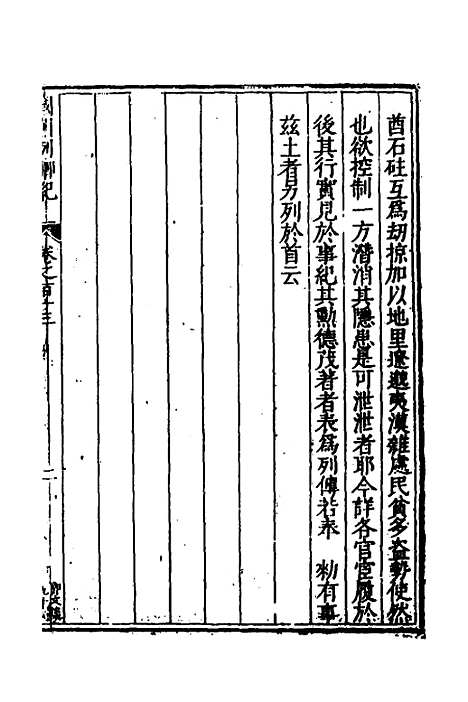 酋石砫互爲刼掠加以地里遼邈夷漢雜處民貧多盗勢使然
也欲控制一方潛消其隱患是可泄泄者耶今詳各官宦履於
後其行實見於事紀其勲德茂著者表爲列傳若奉 勑有事
兹土者另列於首云
卷之百十三
二